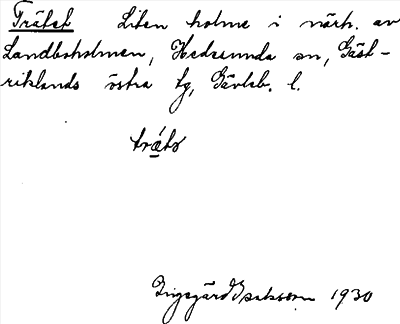 Trätet Liten holme i närh. av
Landboholmen, Hedesunda sn, Gäst-
riklands östra tg, Gävleb. l.
Ingegärd Isaksson 1930